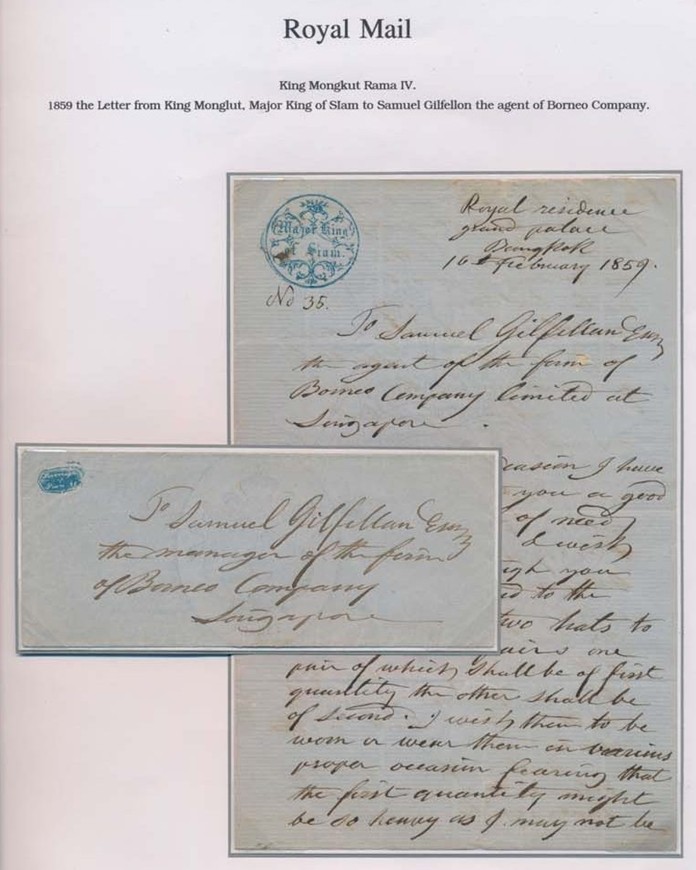 Royal Mail
King Mongkut Rama IV.
1859 the Letter from King Monglut, Major King of SIam to Samuel Gilfellon the agent of Borneo Company.
Major King
of Siam.
No 35.
Royal residence
grand palace
Bangkok
16th February 1859.
To Samuel Gilfellan Esqr
the agent of the firm of
Borneo Company limited at
Singapore.
I have
you a good
of need
I wish
you
to the
two hats to
one
pair of which shall be of first
quantity the other shall be
of second. I wish them to be
worn or wear them in various
proper occasion fearing that
the first quantity might
be so heavy as I may not be
To Samuel Gilfellan Esqr
the manager of the firm
of Borneo Company
Singapore